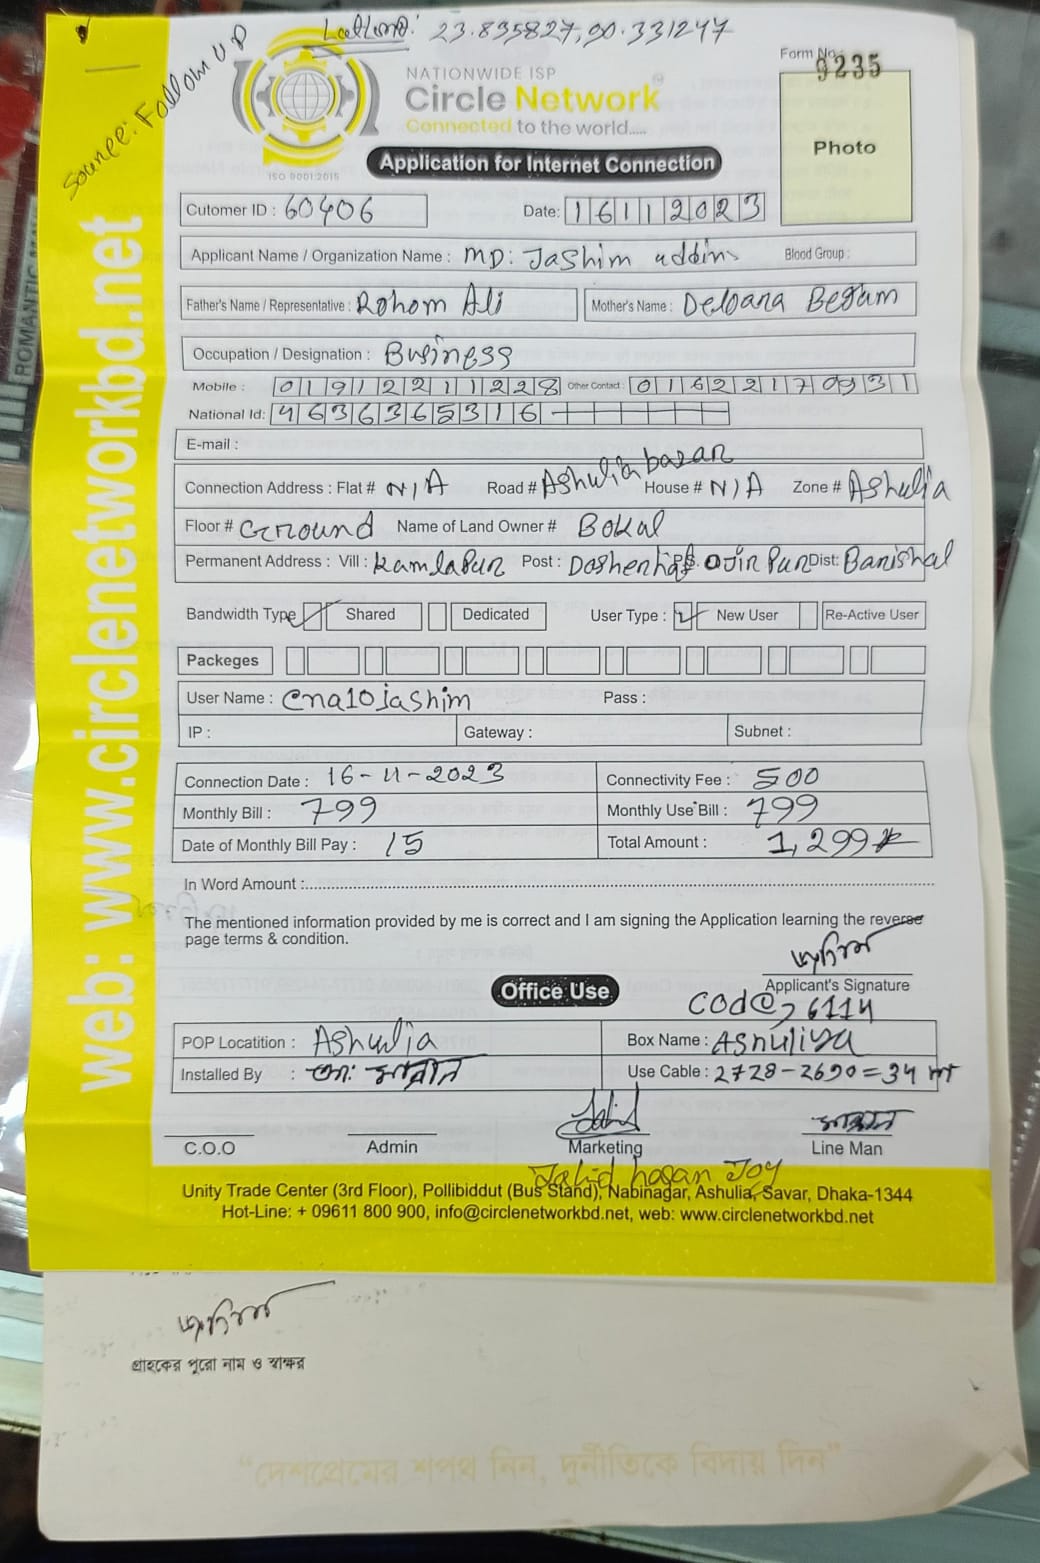 Latlong: 23.895827,90.331247
Source: Follow UP
Form No: 9235
NATIONWIDE ISP
Circle Network
Connected to the world.....
ISO 9001:2015
Photo
Application for Internet Connection
Cutomer ID : 60406 Date: 16112023
Applicant Name / Organization Name : MD: Jashim uddin Blood Group :
Father's Name / Representative : Rohom Ali Mother's Name : Deloara Begum
Occupation / Designation : Business
Mobile : 01912211228 Other Contact : 01622170931
National Id: 4636365316
E-mail :
Connection Address : Flat # N/A Road # Ashulia bazar House # N/A Zone # Ashulia
Floor # Ground Name of Land Owner # Bokal
Permanent Address : Vill : Kamlapur Post : P.S. Ojir Pur Dist: Barishal
Bandwidth Type Shared Dedicated User Type : New User Re-Active User
Packeges
User Name : cna10jashim Pass :
IP : Gateway : Subnet :
Connection Date : 16-11-2023 Connectivity Fee : 500
Monthly Bill : 799 Monthly Use Bill : 799
Date of Monthly Bill Pay : 15 Total Amount : 1,299
In Word Amount :
The mentioned information provided by me is correct and I am signing the Application learning the reverse
page terms & condition.
Applicant's Signature
Office Use
Code 6114
POP Locatition : Ashulia Box Name : Ashuliya
Installed By : Use Cable : 2728-2690=34 mt
C.O.O Admin Marketing Line Man
Jahid hasan Joy
Unity Trade Center (3rd Floor), Pollibiddut (Bus Stand), Nabinagar, Ashulia, Savar, Dhaka-1344
Hot-Line: + 09611 800 900, info@circlenetworkbd.net, web: www.circlenetworkbd.net
web: www.circlenetworkbd.net
গ্রাহকের পুরো নাম ও স্বাক্ষর
"দেশপ্রেমের শপথ নিন, দুর্নীতিকে বিদায় দিন"
ROMANTIC